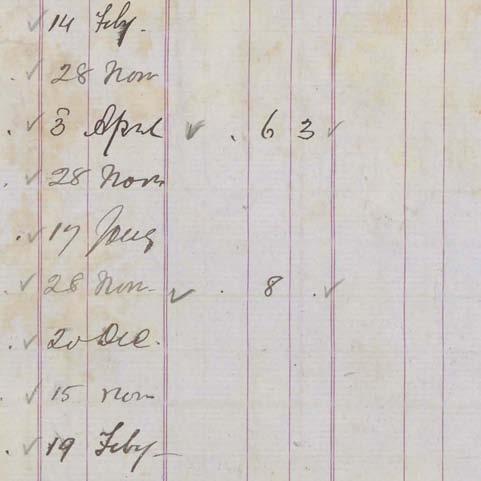 ✓ 14 Feby.
✓ 28 Nov
✓ 3 April ✓ . 6 3 ✓
✓ 28 Nov
✓ 17
✓ 28 Nov. ✓ . 8 . ✓
✓ 20 Dec.
✓ 15 Nov
✓ 19 Feby